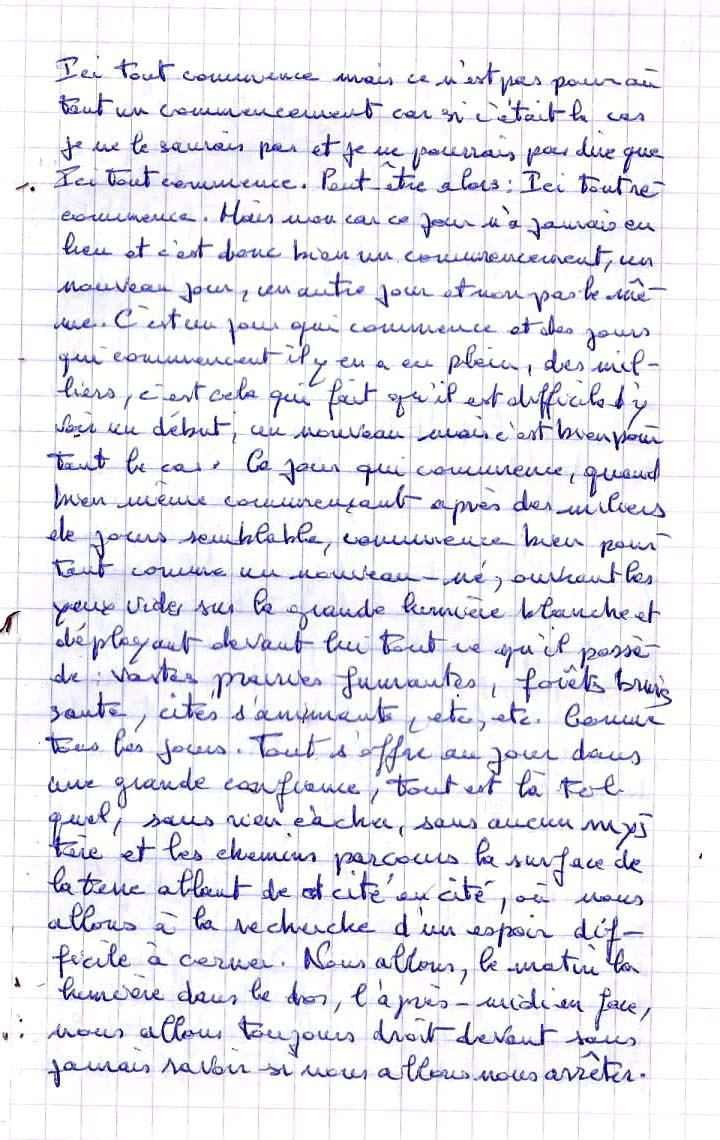 Ici tout commence mais ce n'est pas pour au
tant un commencement car si c'était le cas
je ne le saurais pas et je ne pourrais pas dire que
Ici tout commence. Peut-être alors : Ici tout re-
commence. Mais non car ce jour n'a jamais eu
lieu et c'est donc bien un commencement, un
nouveau jour, un autre jour et non pas le mê-
me. C'est un jour qui commence et des jours
qui commencent il y en a eu plein, des mil-
liers, c'est cela qui fait qu'il est difficile d'y
voir un début, un nouveau mais c'est bien pour
tant le cas. Ce jour qui commence, quand
bien même commençant après des milliers
de jours semblable, commence bien pour
tant comme un nouveau-né, ouvrant les
yeux vides sur la grande lumière blanche et
déployant devant lui tout ce qu'il possè-
de : vastes prairies fumantes, forêts bruis
sante, cités s'animants, etc, etc. Comme
tous les jours. Tout s'offre au jour dans
une grande confiance, tout est là tel-
quel, sans rien cacher, sans aucun mys
tère et les chemins parcours la surface de
la terre allant de cité en cité, où nous
allons à la recherche d'un espoir dif-
ficile à cerner. Nous allons, le matin la
lumière dans le dos, l'après-midi en face,
nous allons toujours droit devant sans
jamais savoir si nous allons nous arrêter.